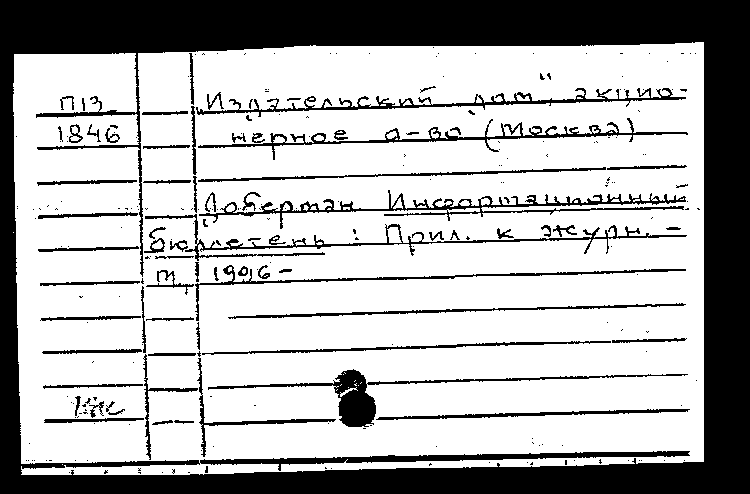 П13
1846
„Издательский дом", акцио-
нерное о-во (Москва)
Доберман Информационный
бюллетень : Прил. к журн. -
М, 1996 -